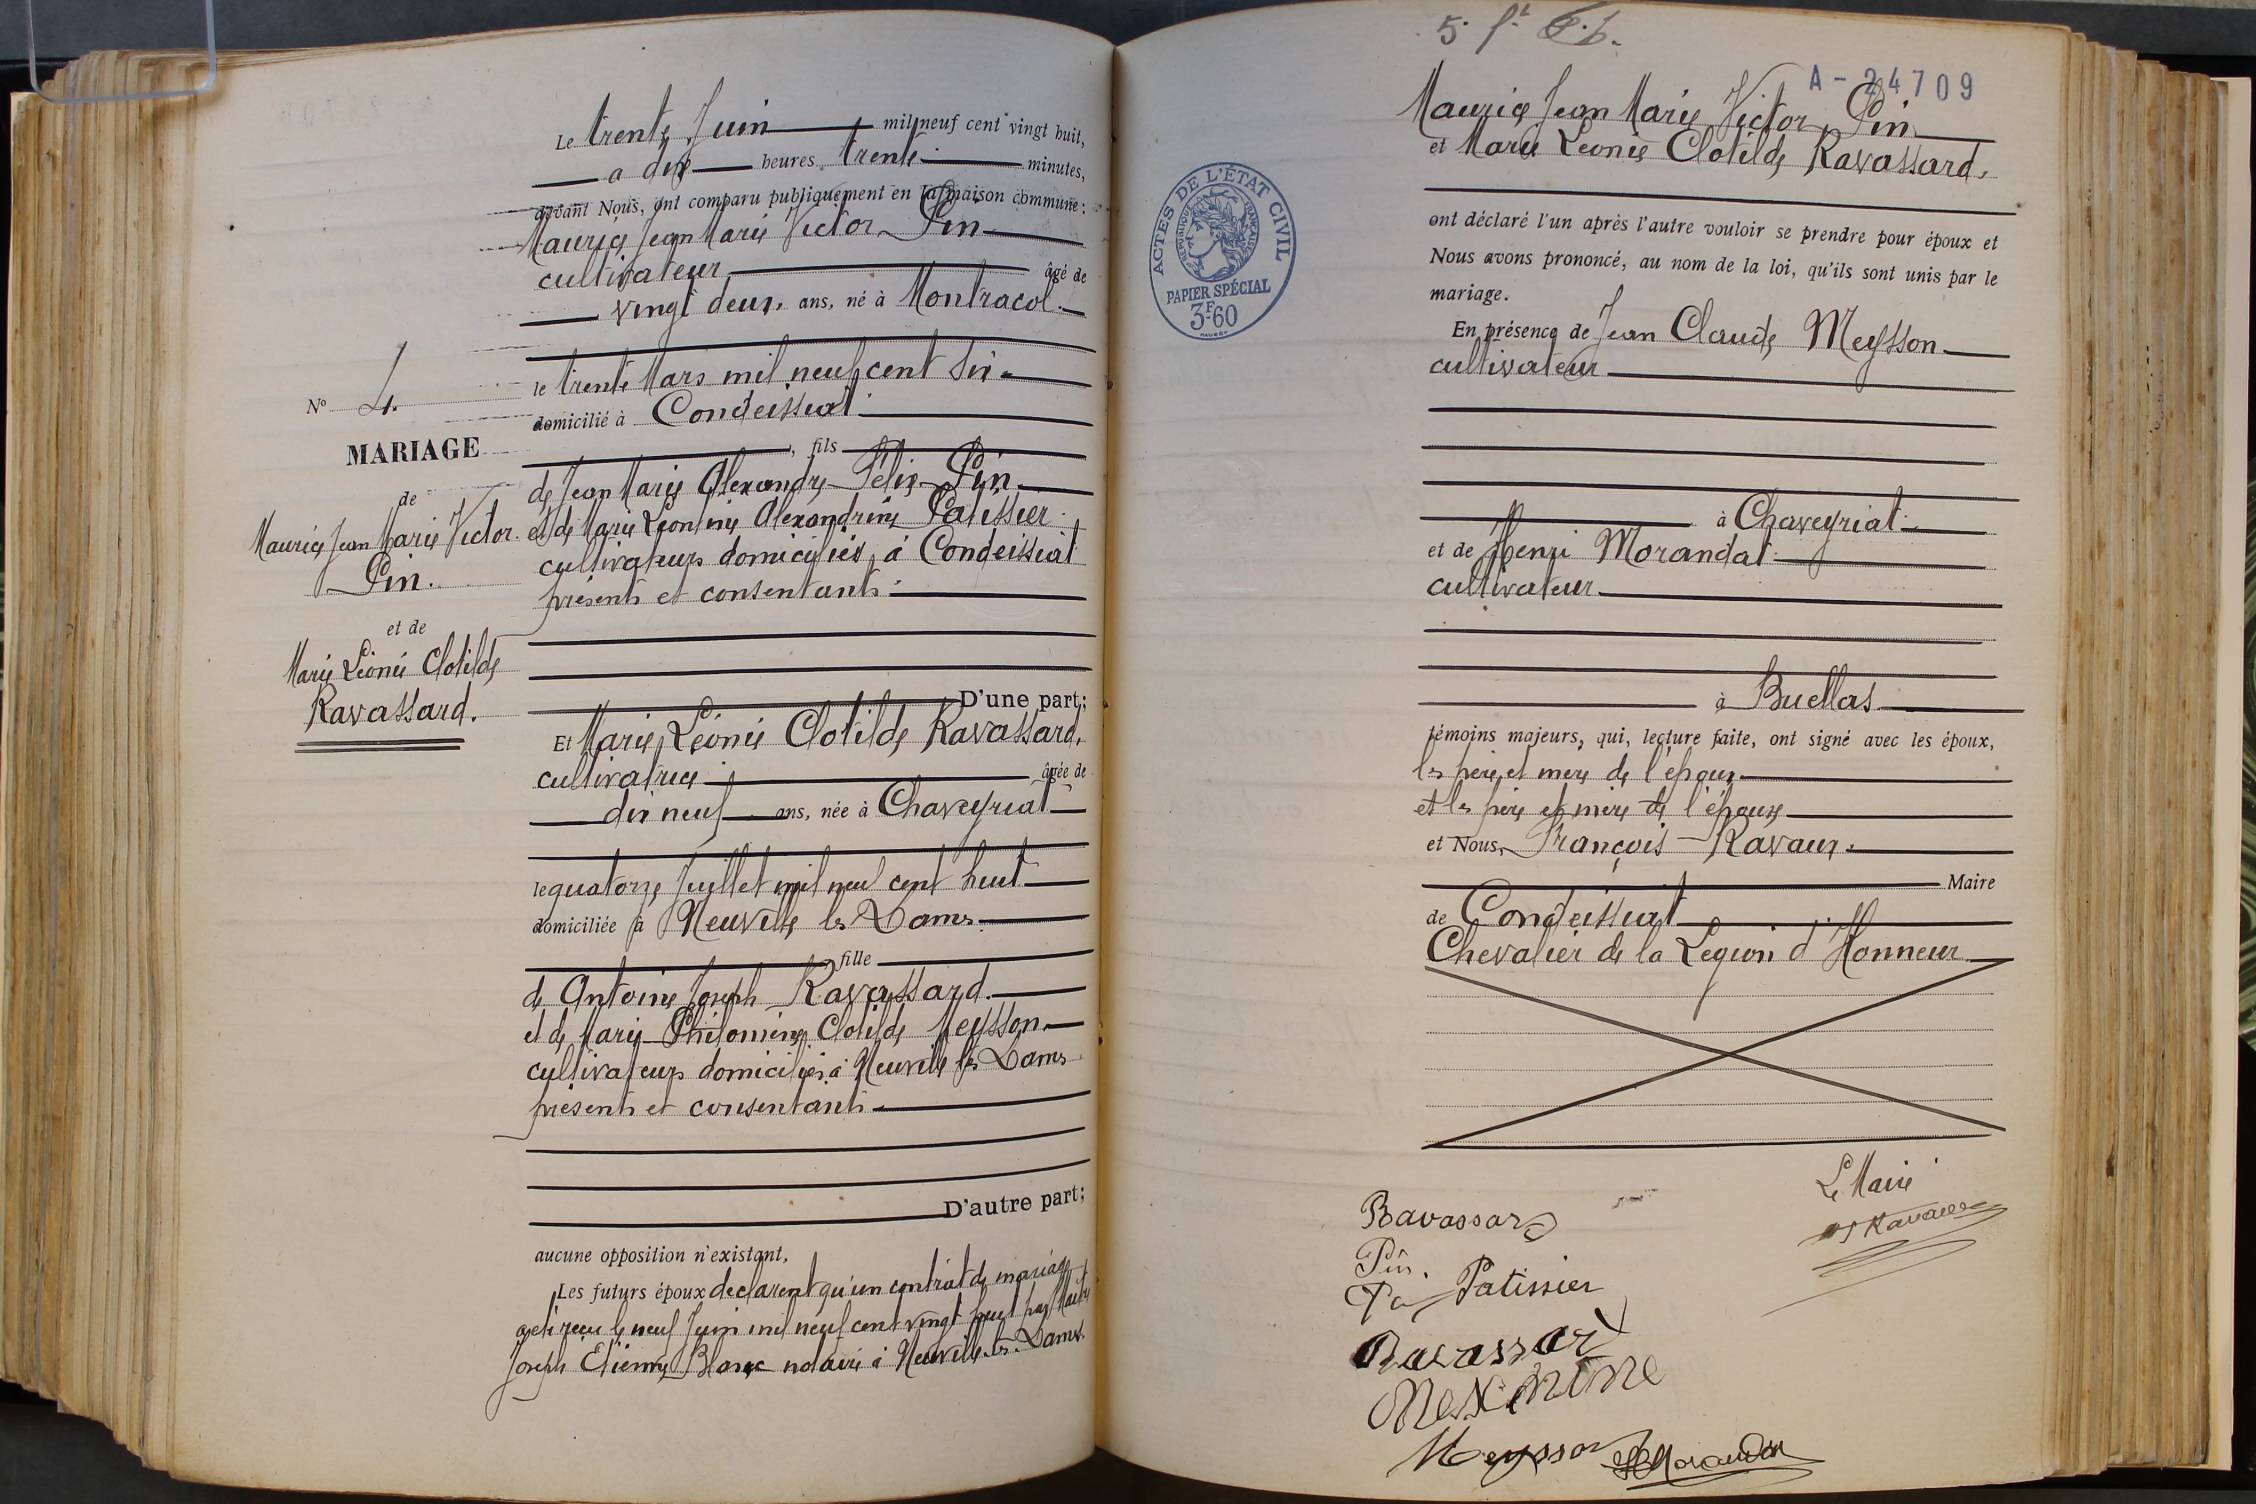 Le trente Juin mil neuf cent vingt huit,
a dix heures trente minutes,
devant Nous, ont comparu publiquement en la maison commune :
Maurice Jean Marie Victor Pin
cultivateur âgé de
vingt deux ans, né à Montracol
le trente Mars mil neuf cent six
domicilié à Condeissiat
, fils
de Jean Marie Alexandre Félix Pin
et de Marie Léontine Alexandrine Patissier
cultivateurs domiciliés à Condeissiat
présents et consentants
D'une part ;
Et Marie Léonie Clotilde Ravassard,
cultivatrice âgée de
dix neuf ans, née à Chaveyriat
le quatorze Juillet mil neuf cent huit
domiciliée à Neuville les Dames
fille
de Antoine Joseph Ravassard
et de Marie Philomène Clotilde Meysson
cultivateurs domiciliés à Neuville les Dames
présents et consentants
D'autre part ;
aucune opposition n'existant,
Les futurs époux déclarent qu'un contrat de mariage
a été reçu le neuf Juin mil neuf cent vingt huit par Maître
Joseph Etienne Blanc notaire à Neuville-les-Dames.
N° 4.
MARIAGE
de
Maurice Jean Marie Victor
Pin.
et de
Marie Léonie Clotilde
Ravassard.
A-24709
Maurice Jean Marie Victor Pin
et Marie Léonie Clotilde Ravassard.
ACTES DE L'ÉTAT CIVIL
RÉPUBLIQUE FRANÇAISE
PAPIER SPÉCIAL
3F60
ont déclaré l'un après l'autre vouloir se prendre pour époux et
Nous avons prononcé, au nom de la loi, qu'ils sont unis par le
mariage.
En présence de Jean Claude Meysson
cultivateur
à Chaveyriat
et de Henri Morandat
cultivateur
à Buellas
témoins majeurs, qui, lecture faite, ont signé avec les époux,
les père et mère de l'époux
et les père et mère de l'épouse
et Nous, François Ravaux.
Maire
de Condeissiat
Chevalier de la Légion d'Honneur
Le Maire
Ravaux
Ravassard
Pin.
Pin Patissier
Ravassard
Meysson
Morandat